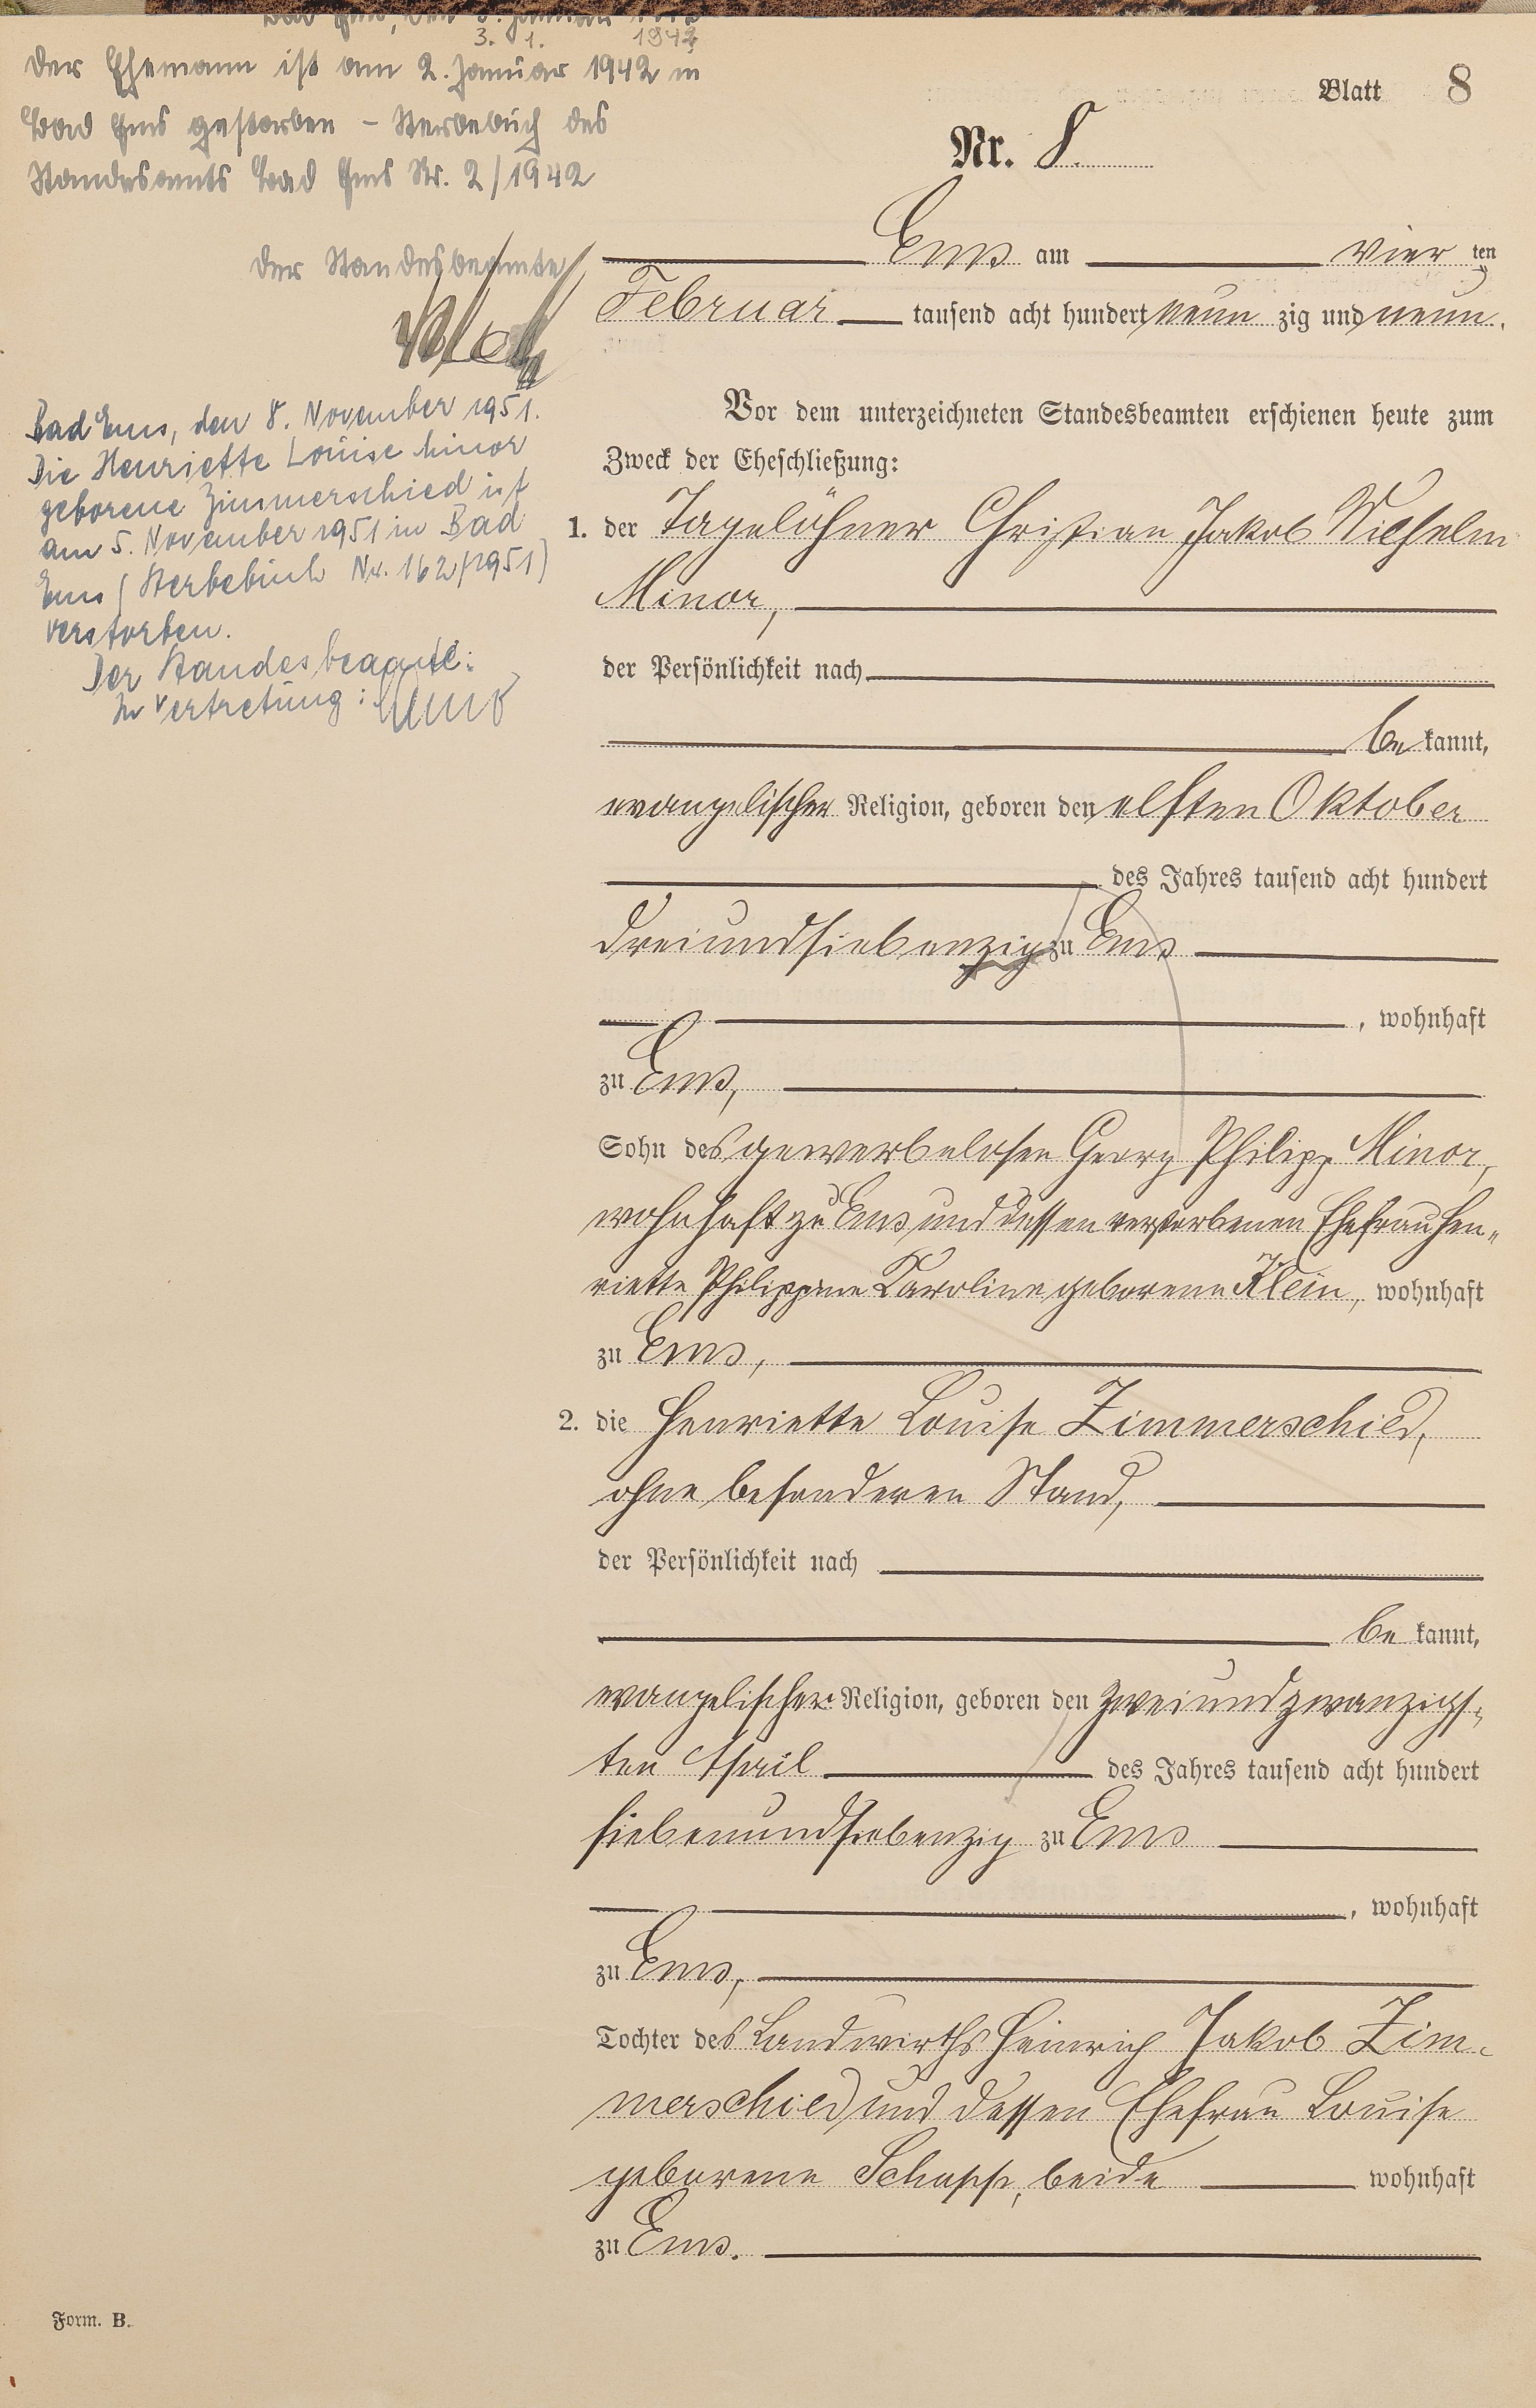 Bad Ems, den 3. Januar 1942
3. 1. 1942
Der Ehemann ist am 2. Januar 1942 in
Bad Ems gestorben – Sterbebuch des
Standesamts Bad Ems Nr. 2/1942
Der Standesbeamte
Bad Ems, den 8. November 1951.
Die Henriette Louise Minor
geborene Zimmerschied ist
am 5. November 1951 in Bad
Ems (Sterbebuch Nr. 162/1951)
verstorben.
Der Standesbeamte:
In Vertretung:
Blatt 8
Nr. 8.
Ems am vier ten
Februar tausend acht hundert neun zig und neun.
Vor dem unterzeichneten Standesbeamten erschienen heute zum
Zweck der Eheschließung:
1. der Tagelöhner Christian Jakob Wilhelm
Minor,
der Persönlichkeit nach
be kannt,
evangelischer Religion, geboren den elften Oktober
des Jahres tausend acht hundert
dreiundsiebenzig zu Ems
, wohnhaft
zu Ems,
Sohn des gewerbelosen Georg Philipp Minor,
wohnhaft zu Ems und dessen verstorbenen Ehefrau Hen-
riette Philippine Karoline geborene Klein, wohnhaft
zu Ems,
2. die Henriette Louise Zimmerschied,
ohne besonderen Stand,
der Persönlichkeit nach
be kannt,
evangelischer Religion, geboren den zweiundzwanzigs-
ten April des Jahres tausend acht hundert
siebenundsiebenzig zu Ems
, wohnhaft
zu Ems,
Tochter des Landwirths Heinrich Jakob Zim-
merschied und dessen Ehefrau Louise
geborene Schupp, beide wohnhaft
zu Ems.
Form. B.